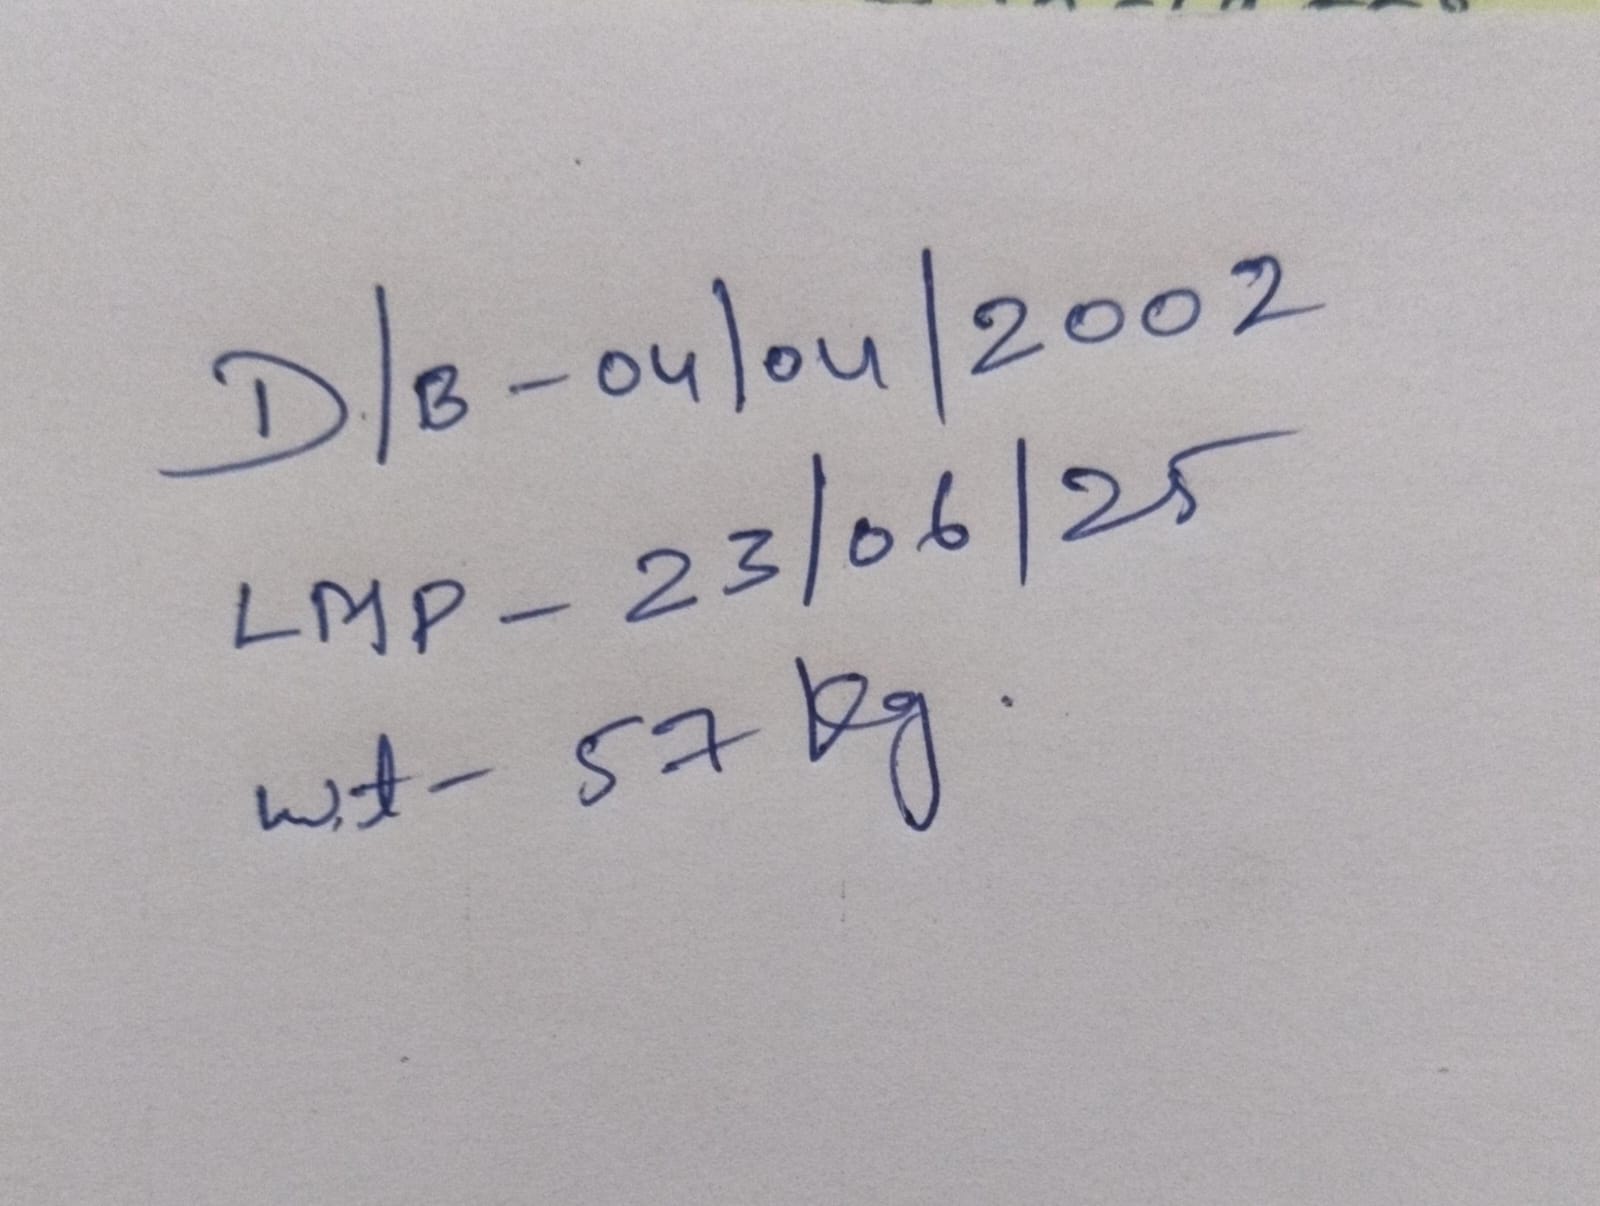 D/B - 04/04/2002
LMP - 23/06/25
w.t - 57 kg.